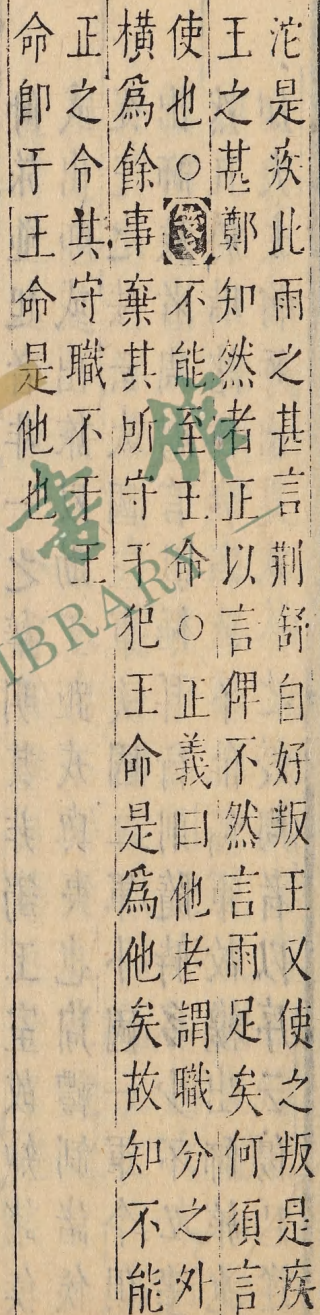 沱是疾此雨之甚言荆舒自好叛王又使之叛是疾
王之甚鄭知然者正以言俾不然言雨足矣何須言
使也○箋不能至王命○正義曰他者謂職分之外
橫爲餘事棄其所守干犯王命是爲他矣故知不能
正之令其守職不干王
命卽于王命是他也
書館
LIBRARY